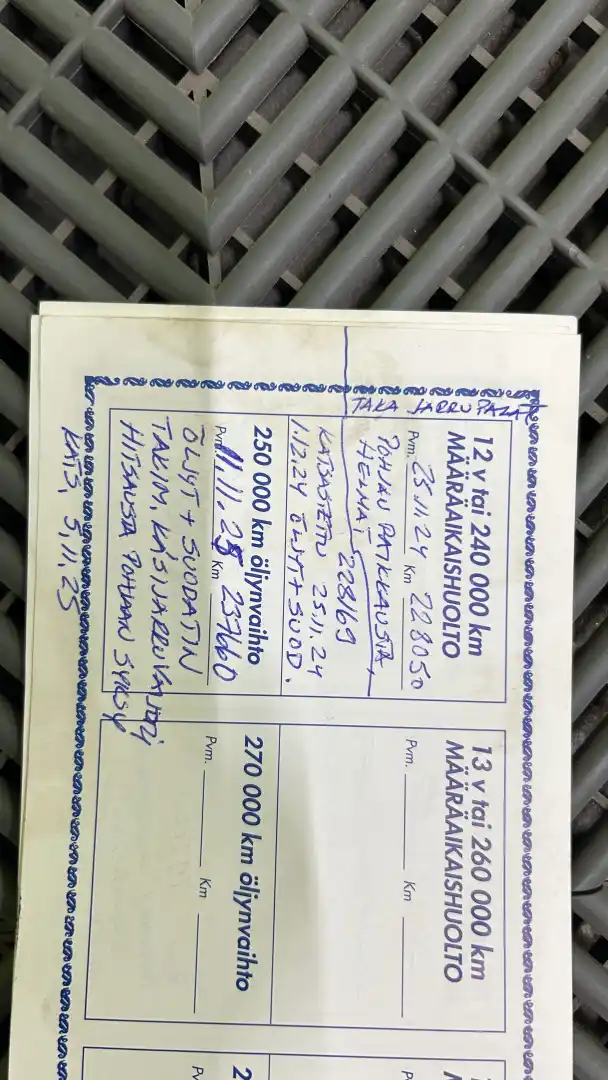 TAKA JARRUPALAT
12 v tai 240 000 km
MÄÄRÄAIKAISHUOLTO
Pvm. 25.11.24 Km 228050
POHJAN PAIKKAUSTA,
HEINÄ
228169
KATSASTETTU 25.11.24
1.12.24 ÖLJYT + SUOD.
250 000 km öljynvaihto
Pvm. 1.11.25 Km 237660
ÖLJYT + SUODATIN
TAKIM. KÄSIJARRUVAIJERI
HITSAUSTA POHJAAN SYKSY
KATS. 5.11.25
13 v tai 260 000 km
MÄÄRÄAIKAISHUOLTO
Pvm. Km
270 000 km öljynvaihto
Pvm. Km